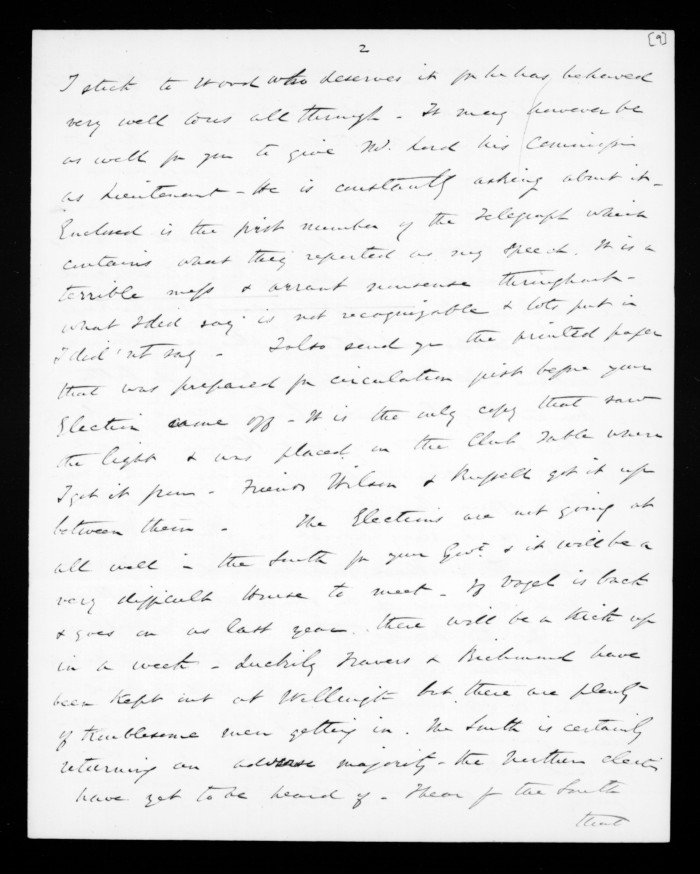 [9]
2
I stick to Wood who deserves it for he has behaved
very well to us all through - It may however be
as well for you to give Mr. Lord his Commission
as Lieutenant - He is constantly asking about it -
Enclosed is the first number of the Telegraph which
contains what they reported as my speech. It is a
terrible mess & arrant nonsense throughout -
what I did say is not recognizable & lots put in
I did'nt say - I also send you the printed paper
that was prepared for circulation just before your
Election came off - It is the only copy that saw
the light & was placed on the Club Table where
I got it from - Friends Wilson & Russell got it up
between them - The Elections are not going at
all well in the South for your Govt. & it will be a
very difficult House to meet - If Vogel is back
& goes on as last year there will be a kick up
in a week - Luckily Travers & Richmond have
been kept out at Wellington but there are plenty
of troublesome men getting in. The South is certainly
returning an adverse majority - the Northern
have yet to be heard of - I hear fr the South
that